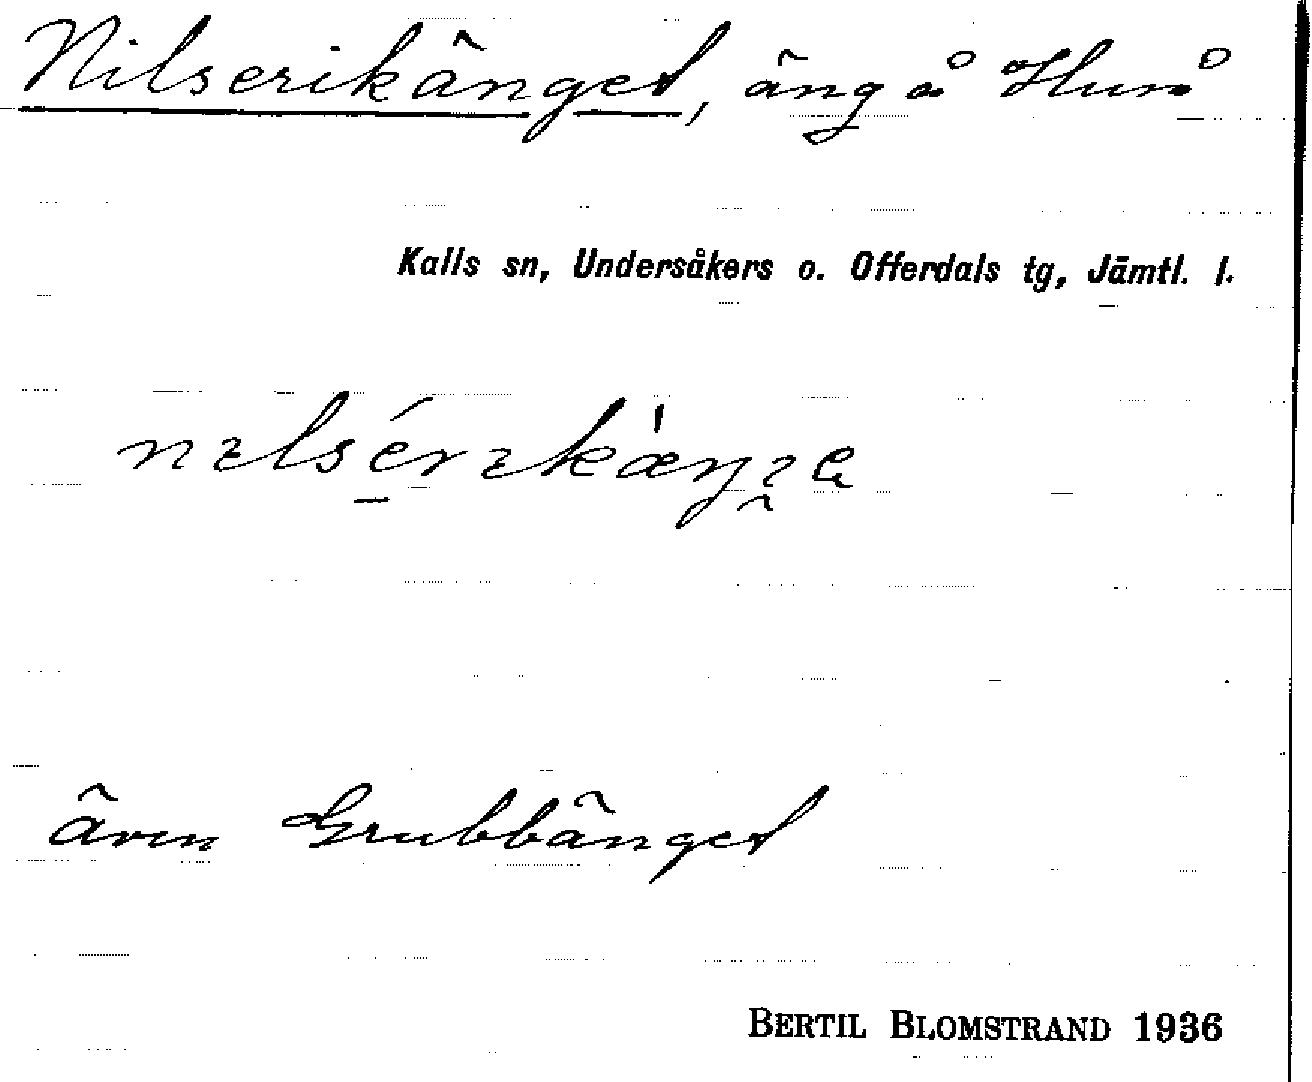 Nilserikänget, äng å Huså
Kalls sn, Undersåkers o. Offerdals tg, Jämtl. l.
även Grubbänget
BERTIL BLOMSTRAND 1936